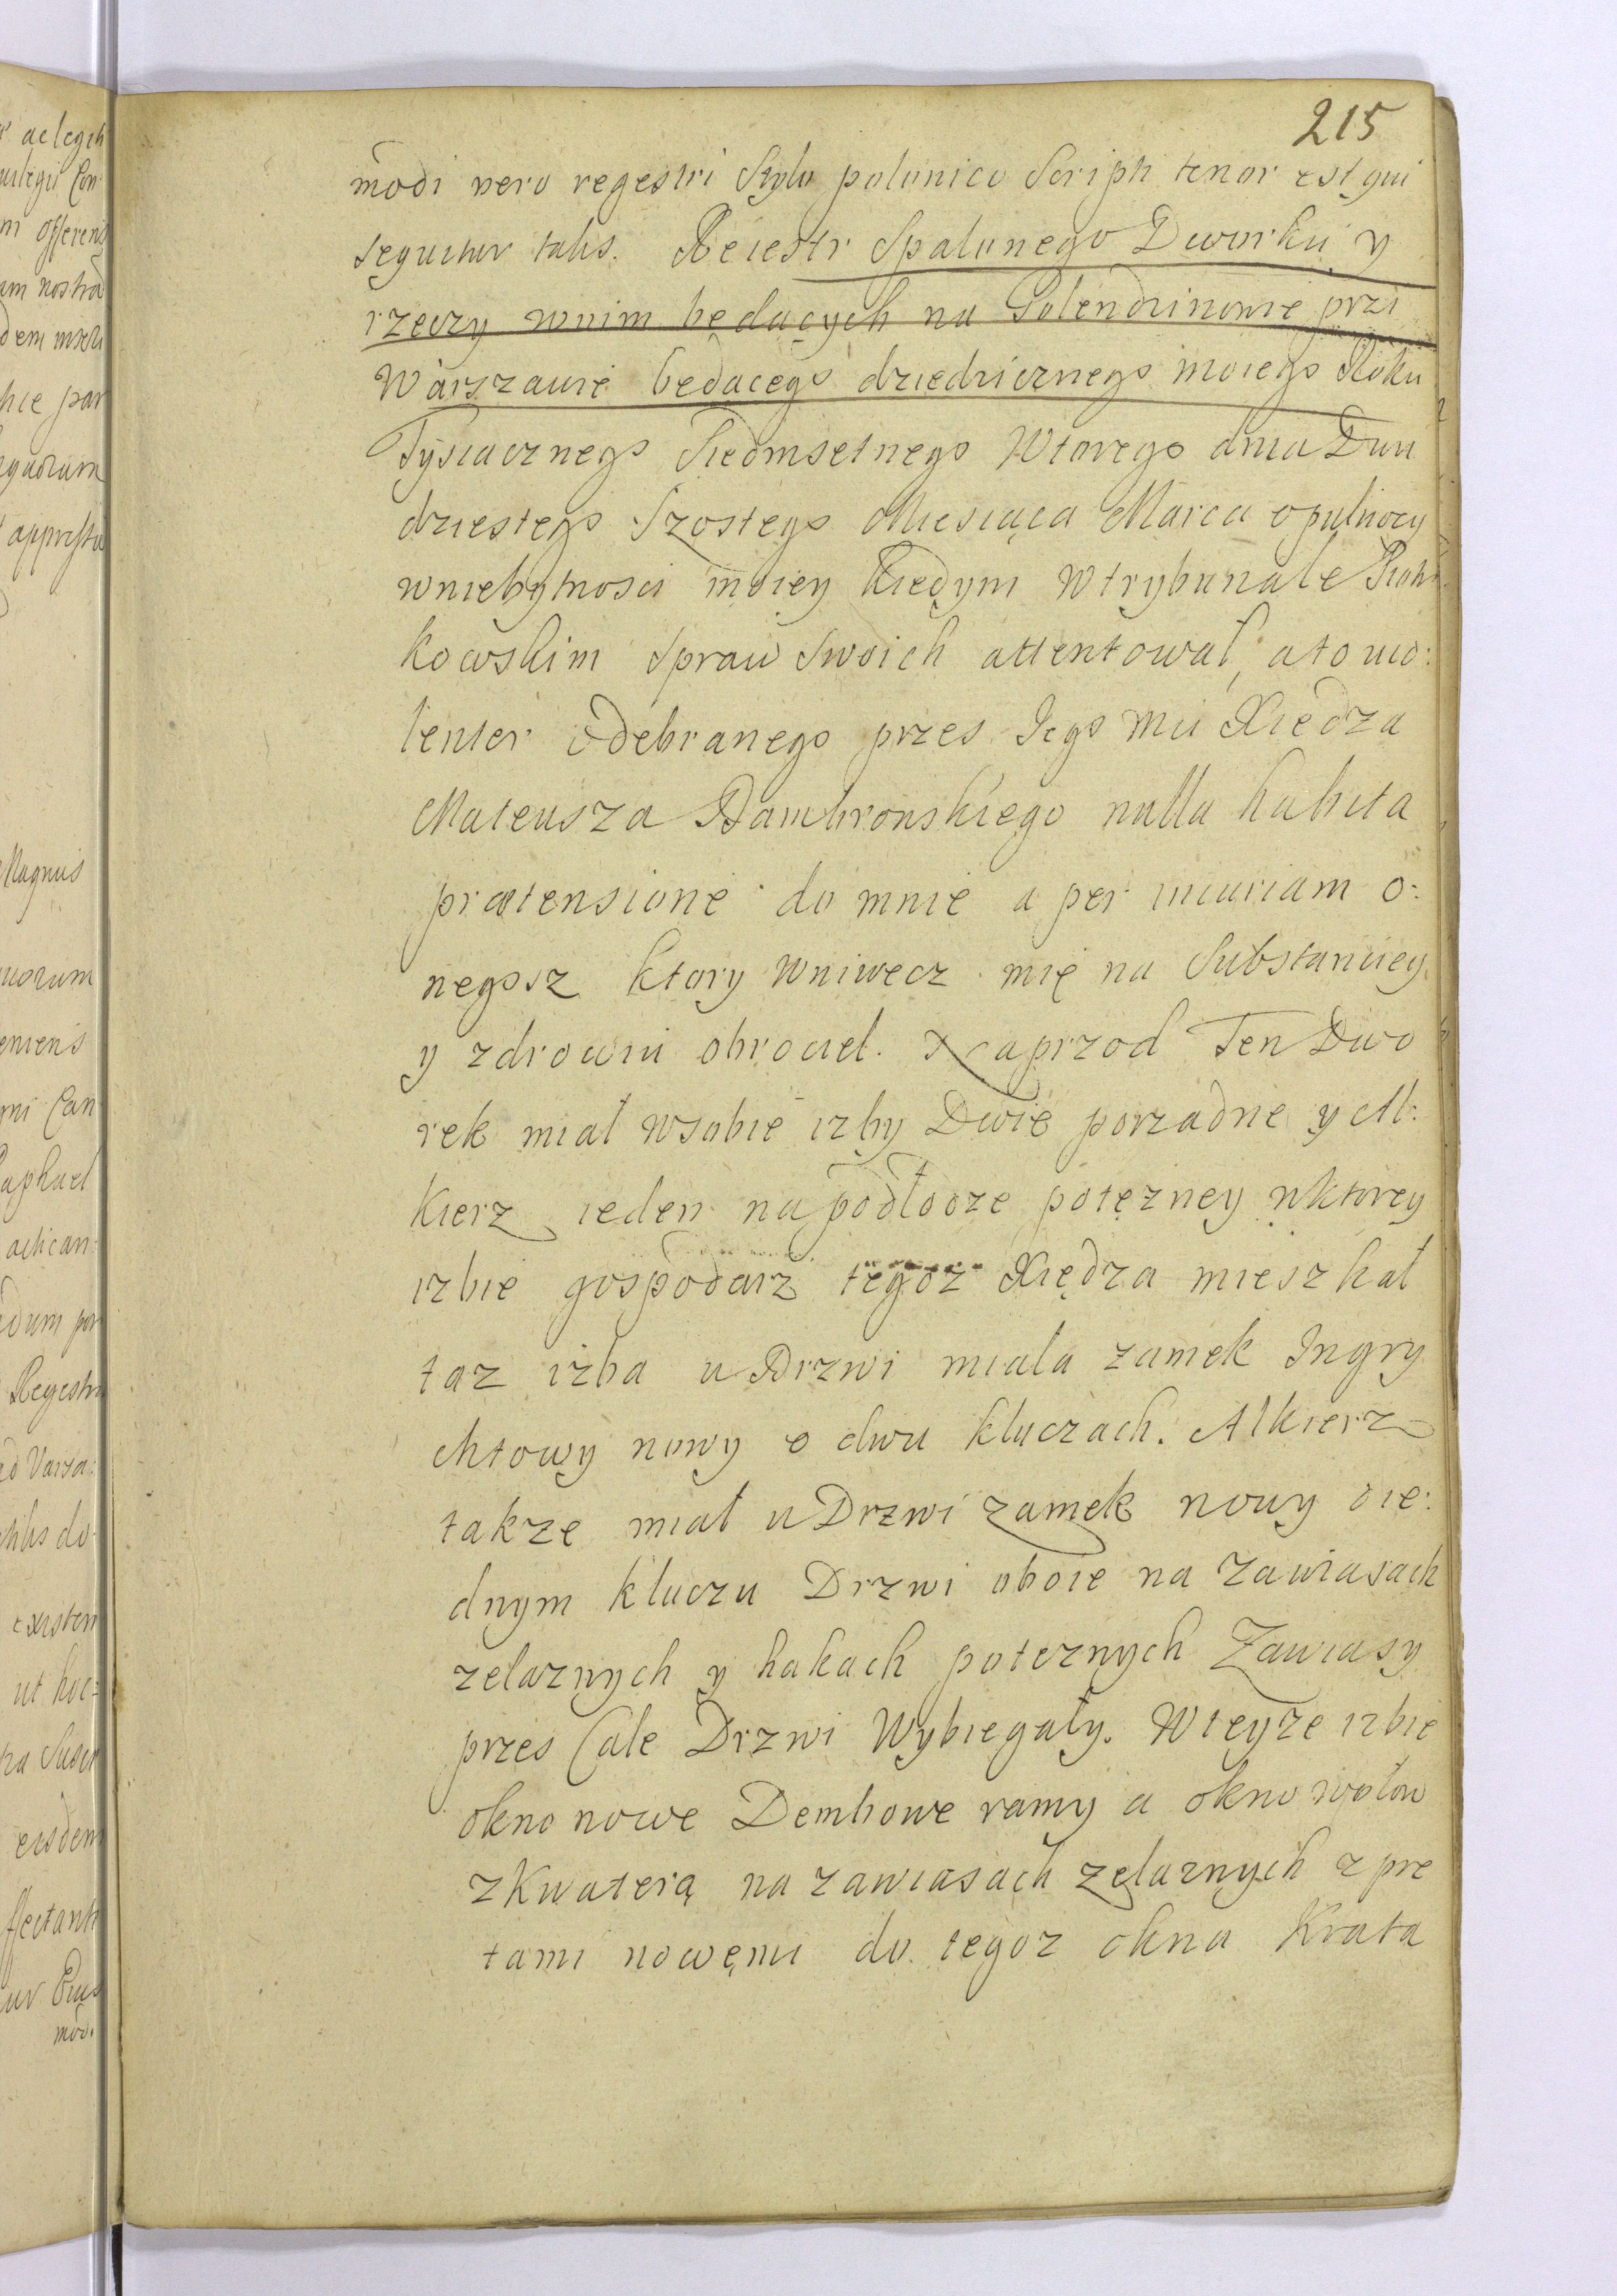 215
modi vero regestri Stylo polonico Scripti tenor est qui
sequitur talis. Reiestr Spalonego Dworku y
rzeczy wnim będących na Golendzinowie przi
Warszawie będącego dziedzicznego moiego Roku
Tysiacznego Siedmsetnego Wtorego dnia Dwu
dziestego Szostego Miesiąca Marca o pulnocy
wniebytnosci moiey kiedym wtrybunale Piotr
kowskim Spraw Swoich attentował, a to vio:
lenter odebranego przes Iego Mci Xiedza
Mateusza Dambronskiego nulla habita
prætensione do mnie a per iniuriam o:
negosz ktory wniwecz mię na Substanciey
y zdrowiu obrociel. Naprzod Ten Dwo
rek miał wsobie izby Dwie porzadne y Al:
kierz ieden na podłodze potęzney wktorey
izbie gospodarz tegoz Xiędza mieszkał
taz izba u Drzwi miala zamek Ingry
chtowy nowy o dwu kluczach. Alkierz
takze miał u Drzwi zamek nowy oie:
dnym kluczu Drzwi oboie na Zawiasach
zelaznych y hakach poteznych Zawiasy
przes Cale Drzwi Wybiegały. Wteyze izbie
okno nowe Dembowe ramy a okno wołow
z Kwaterą na zawiasach zelaznych z pre
tami nowęmi do tegoz okna Krata